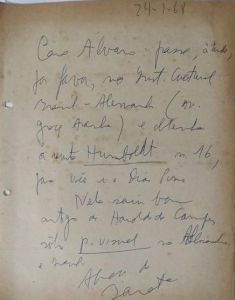 24-1-68
Caro Alvaro: passe, à tarde,
por favor, no Inst. Cultural
Brasil-Alemanha (Av.
Graça Aranha) e obtenha
a revista Humboldt n. 16,
para você e o Dias Pino
Nela saiu bom
artigo de Haroldo de Campos
sôbre p. visual na Alemanha
e Brasil
Abraço do